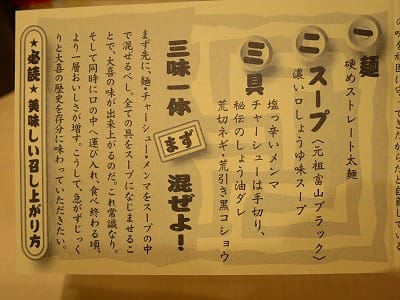 一 麺
硬めストレート太麺
二 スープ〈元祖富山ブラック〉
濃い口しょうゆ味スープ
三 具
塩っ辛いメンマ
チャーシューは手切り、
秘伝のしょうゆ油ダレ
荒切ネギ・荒引き黒コショウ
三味一体 まず 混ぜよ!
まず先に、麺・チャーシュー・メンマをスープの中
で混ぜるべし。全ての具をスープになじませるこ
とで、大喜の味が出来上がるのだ。これ常識なり。
そして同時に口の中へ運び入れ、食べ終わる頃、
より一層おいしさが増す。こうして、急がずじっく
りと大喜の歴史を存分に味わっていただきたい。
★必読★美味しい召し上がり方